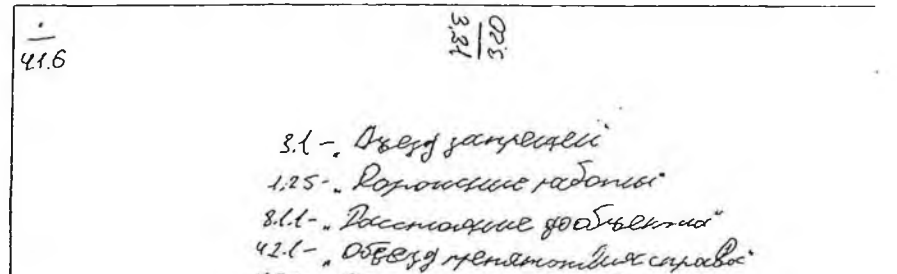 41.6
3.20
3.31
3.1 - „Въезд запрещен"
1.25 - „Дорожные работы"
8.1.1 - „Расстояние до объекта"
4.2.1 - „Объезд препятствия справа"